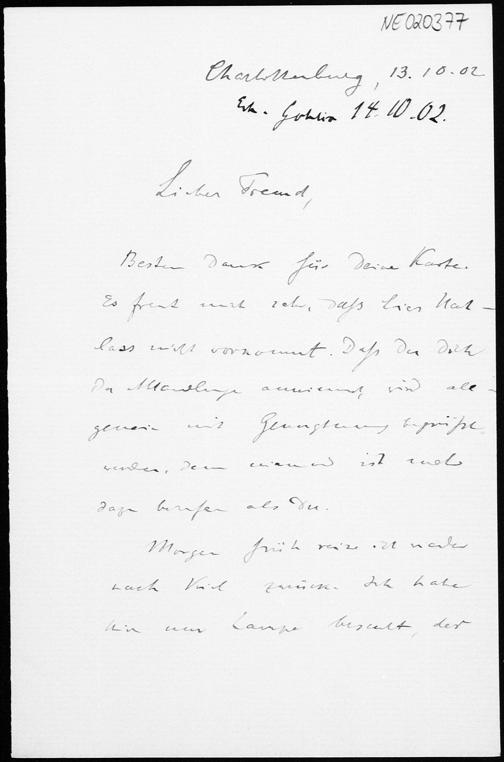 NE020377
Charlottenburg, 13.10.02
14.10.02.
Lieber Freund,
Besten Dank für Deine Karte.
Es freut mich sehr, daß hier Nach-
lass nicht vorkommt. Daß Du Dich
der annimmst, wird all-
gemein mit Genugthuung begrüßt
werden, denn niemand ist mehr
dazu berufen als Du.
Morgen früh reise ich wieder
nach Kiel zurück. Ich habe
hier nur Lampe besucht, der